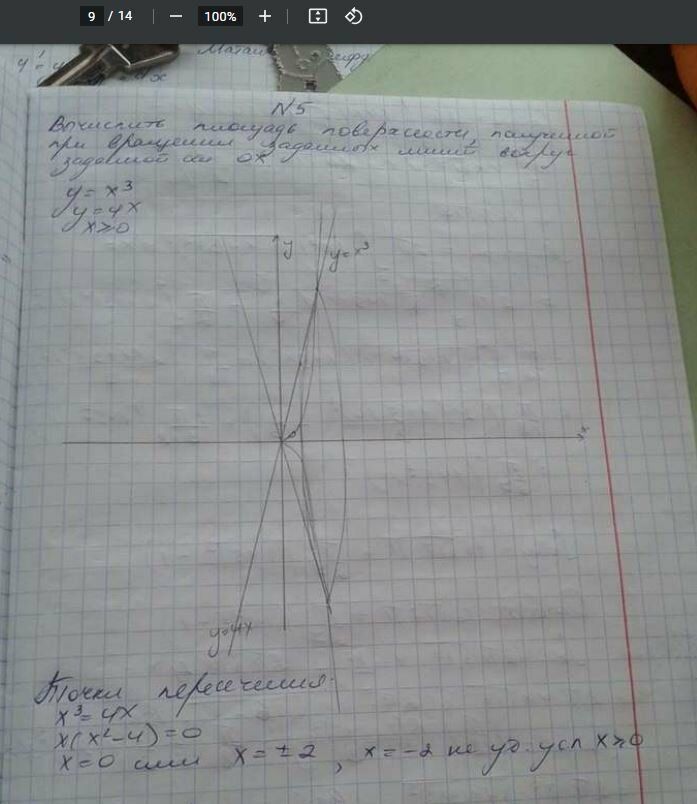 9 / 14 — 100% +
N5
Вычислить площадь поверхности, полученной
при вращении заданных линий вокруг
заданной оси OX
y = x³
y = 4x
x ≥ 0
y
y = x³
x
y=4x
Точки пересечения:
x³ = 4x
x(x² - 4) = 0
x = 0 или x = ± 2 , x = -2 не уд. усл x ≥ 0